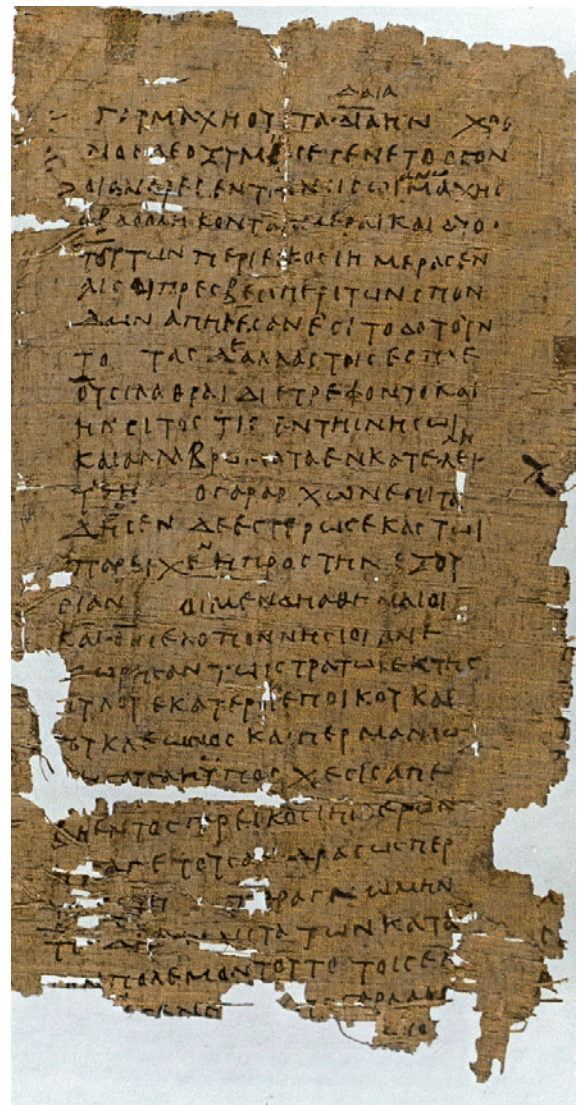 ΔΑΙΑ
ΝΟΣ ΔΕ Ο ΞΥΜΠΑΣ ΕΓΕΝΕΤΟ ΟΣΟΝ
ΟΙ ΑΝΔΡΕΣ ΕΝ ΤΗΙ ΝΗΣΩΙ ΜΑΧΗΣ
ΕΒΔΟΜΗΚΟΝΤΑ ΗΜΕΡΑΙ ΚΑΙ ΔΥΟ
ΤΟΥΤΩΝ ΠΕΡΙ ΕΙΚΟΣΙ ΗΜΕΡΑΣ ΕΝ
ΑΙΣ ΟΙ ΠΡΕΣΒΕΙΣ ΠΕΡΙ ΤΩΝ ΣΠΟΝ
ΔΩΝ ΑΠΗΕΣΑΝ ΕΣΙΤΟΔΟΤΟΥΝ
ΤΟ ΤΑΣ Δ ΑΛΛΑΣ ΤΟΙΣ ΕΣΠΛΕ
ΟΥΣΙ ΛΑΘΡΑΙ ΔΙΕΤΡΕΦΟΝΤΟ ΚΑΙ
ΗΝ ΣΙΤΟΣ ΤΙΣ ΕΝ ΤΗΙ ΝΗΣΩΙ
ΚΑΙ ΑΛΛΑ ΒΡΩΜΑΤΑ ΕΝΚΑΤΕΛΕΙ
Ο ΓΑΡ ΑΡΧΩΝ ΕΠΙΤΑ
ΔΗΣ ΕΝΔΕΕΣΤΕΡΩΣ ΕΚΑΣΤΩΙ
ΠΑΡΕΙΧΕΝ Η ΠΡΟΣ ΤΗΝ ΕΞΟΥ
ΣΙΑΝ ΟΙ ΜΕΝ ΔΗ ΑΘΗΝΑΙΟΙ
ΚΑΙ ΟΙ ΠΕΛΟΠΟΝΝΗΣΙΟΙ ΑΝΕ
ΧΩΡΗΣΑΝ ΤΩΙ ΣΤΡΑΤΩΙ ΕΚ ΤΗΣ
ΠΥΛΟΥ ΕΚΑΤΕΡΟΙ ΕΠ ΟΙΚΟΥ ΚΑΙ
ΤΟΥ ΚΛΕΩΝΟΣ ΚΑΙΠΕΡ ΜΑΝΙΩ
ΔΗΣ ΟΥΣΑ Η ΥΠΟΣΧΕΣΙΣ ΑΠΕ
ΒΗ ΕΝΤΟΣ ΓΑΡ ΕΙΚΟΣΙ ΗΜΕΡΩΝ
ΗΓΑΓΕ ΤΟΥΣ ΑΝΔΡΑΣ ΩΣΠΕΡ
ΠΑΡΑ ΓΝΩΜΗΝ
ΜΑΛΙΣΤΑ ΤΩΝ ΚΑΤΑ
ΤΟΝ ΠΟΛΕΜΟΝ ΤΟΥΤΟ ΤΟΙΣ ΕΛ